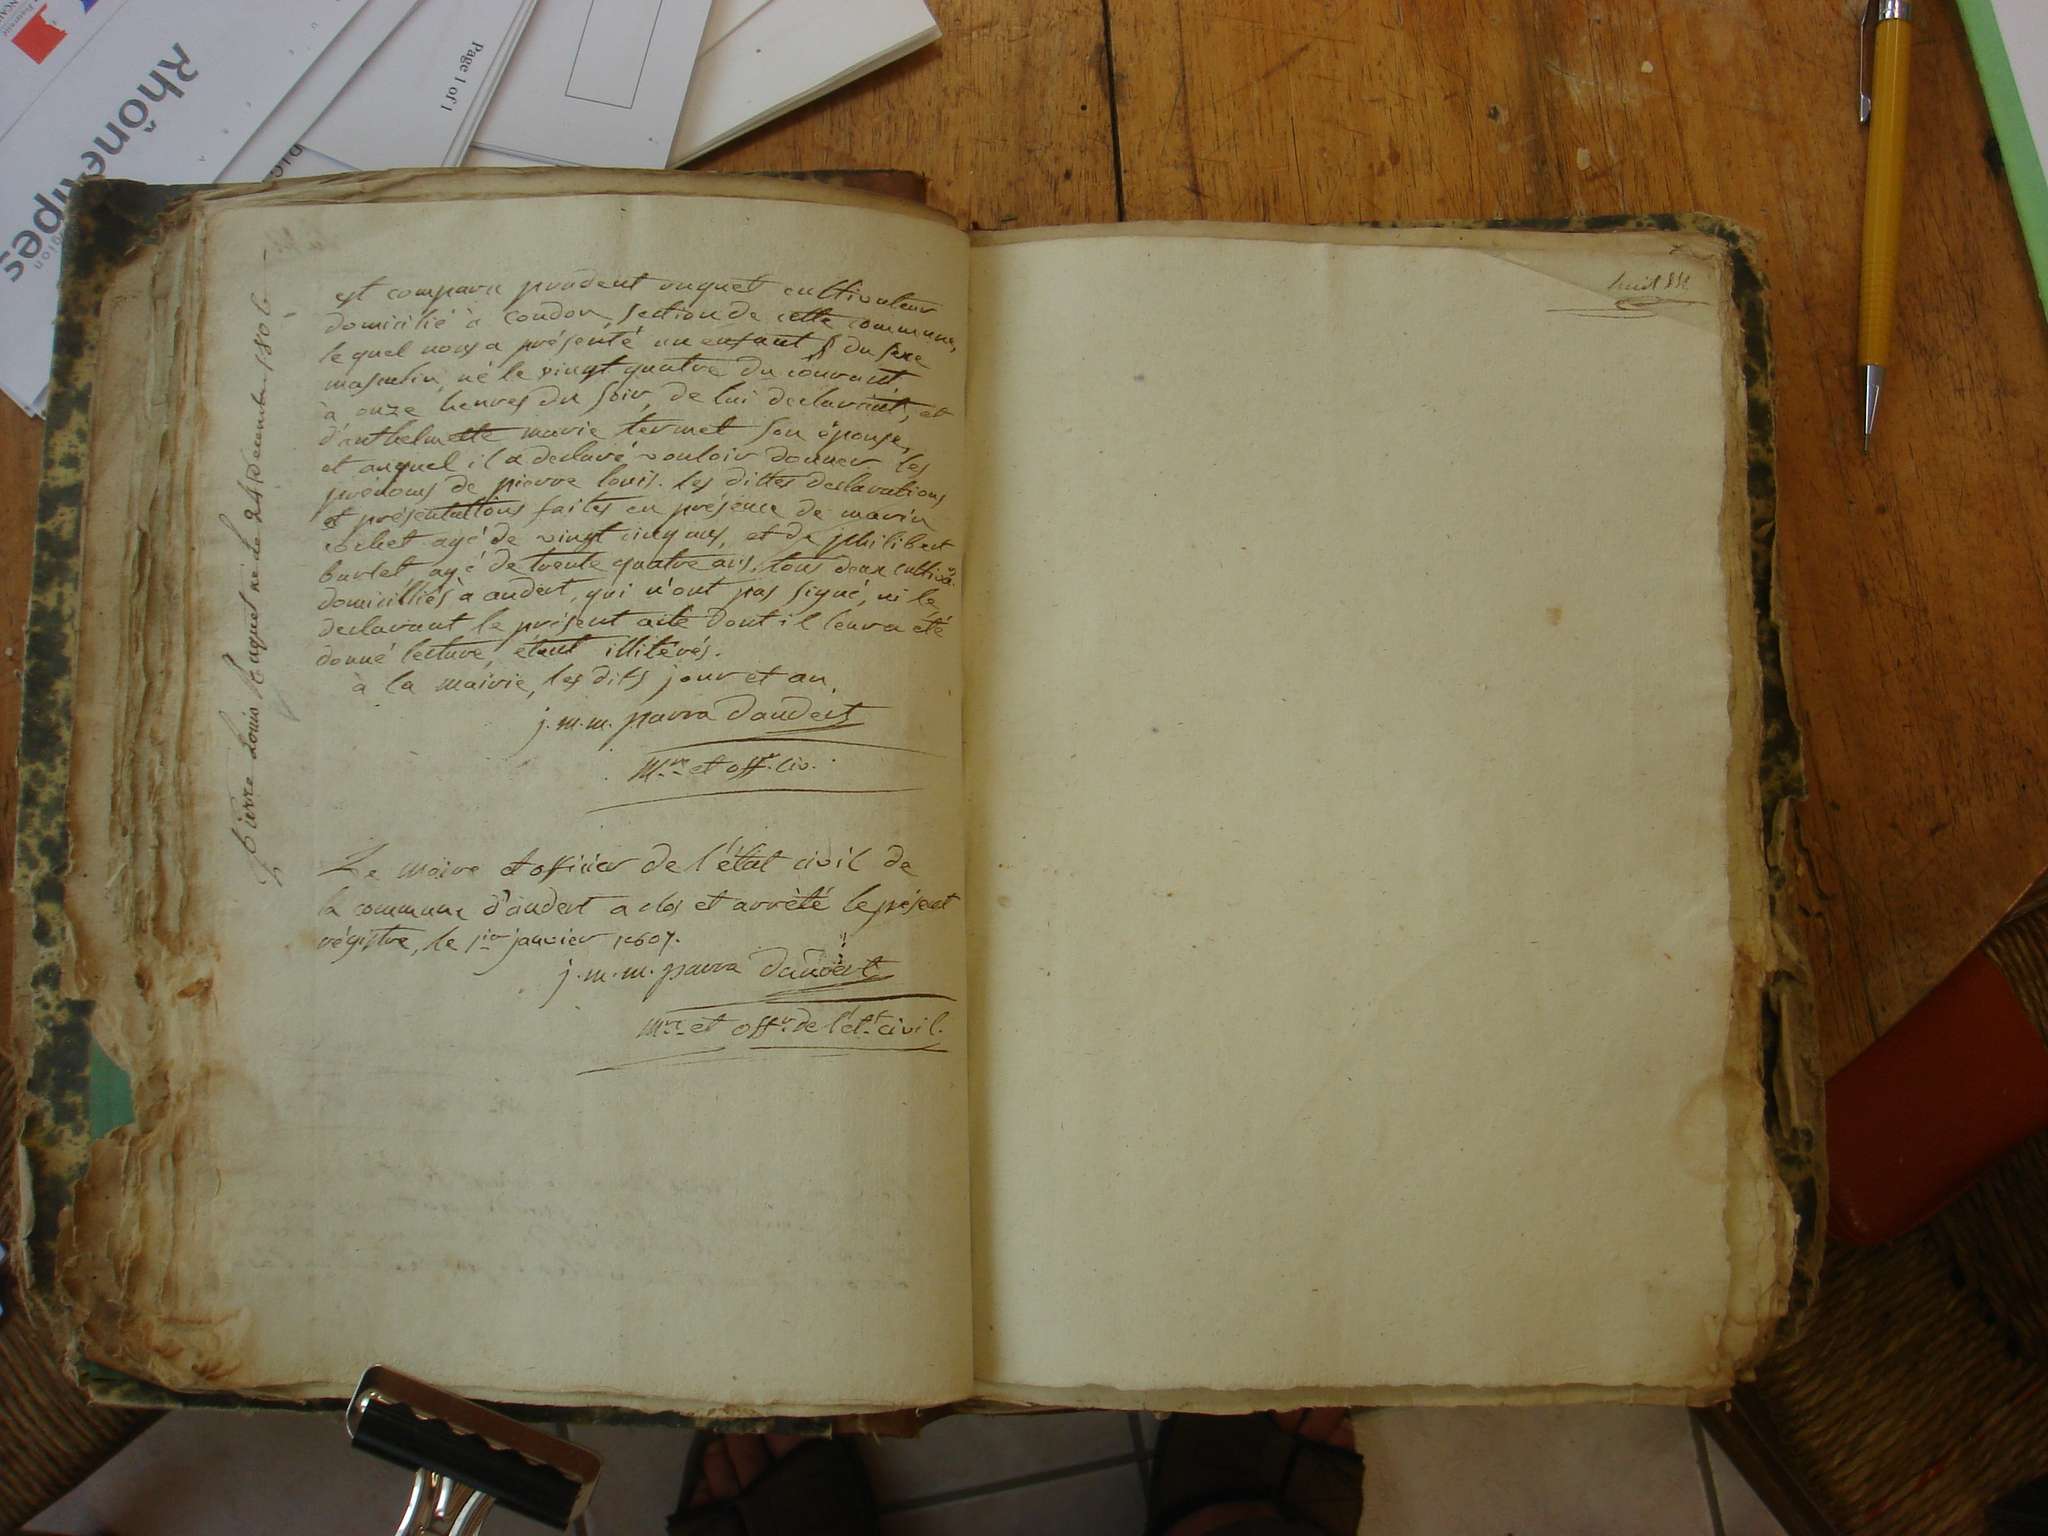 Rhône Alpes
Page 1 of 1
Pierre Louis Huguet né le 24 Décembre 1806
est comparu prudent huguet cultivateur
domicilié à condon, section de cette commune,
lequel nous a présenté un enfant du sexe
masculin, né le vingt quatre du courant,
à onze heures du soir, de lui declarant, et
d'anthelmette marie termet son épouse,
et auquel il a declaré vouloir donner les
prénoms de pierre louis. les dittes declarations
et présentations faites en présence de marin
cochet agé de vingt cinq ans, et de philibert
burlet agé de trente quatre ans, tous deux cultiva.
domiciliés à andert, qui n'ont pas signé, ni le
declarant le présent acte dont il leur a été
donné lecture, étant illitérés.
à la mairie, les dits jour et an.
j. m. m. parra d'andert
M.re et off.r civ.
Le maire et officier de l'état civil de
la commune d'andert a clos et arrêté le présent
régistre, le 1.ier janvier 1807.
j. m. m. parra d'andert
m.re et off.r de l'ét.t civil.